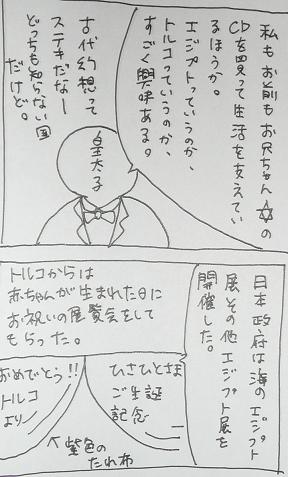 私もお前もお兄ちゃん✡の
CDを買って生活を支えてい
るほうか。
エジプトっていうのか、
トルコっていうのか、
すごく興味ある。
古代幻想って
ステキだなー
どっちも知らない国
だけど。
皇太子
日本政府は海のエジプト
展その他エジプト展を
開催した。
トルコからは
赤ちゃんが生まれた日に
お祝いの展覧会をして
もらった。
ひさひとさま
ご生誕
記念
おめでとう!!
トルコ
より
紫色の
たれ布